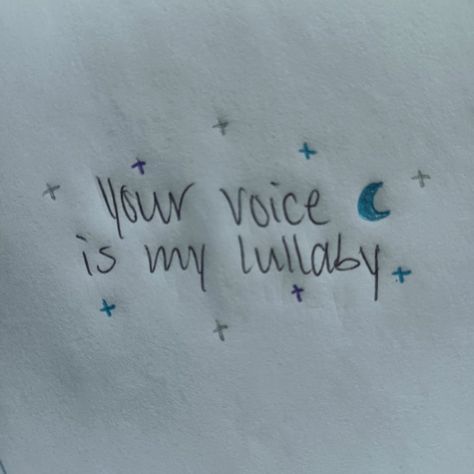 your voice
is my lullaby